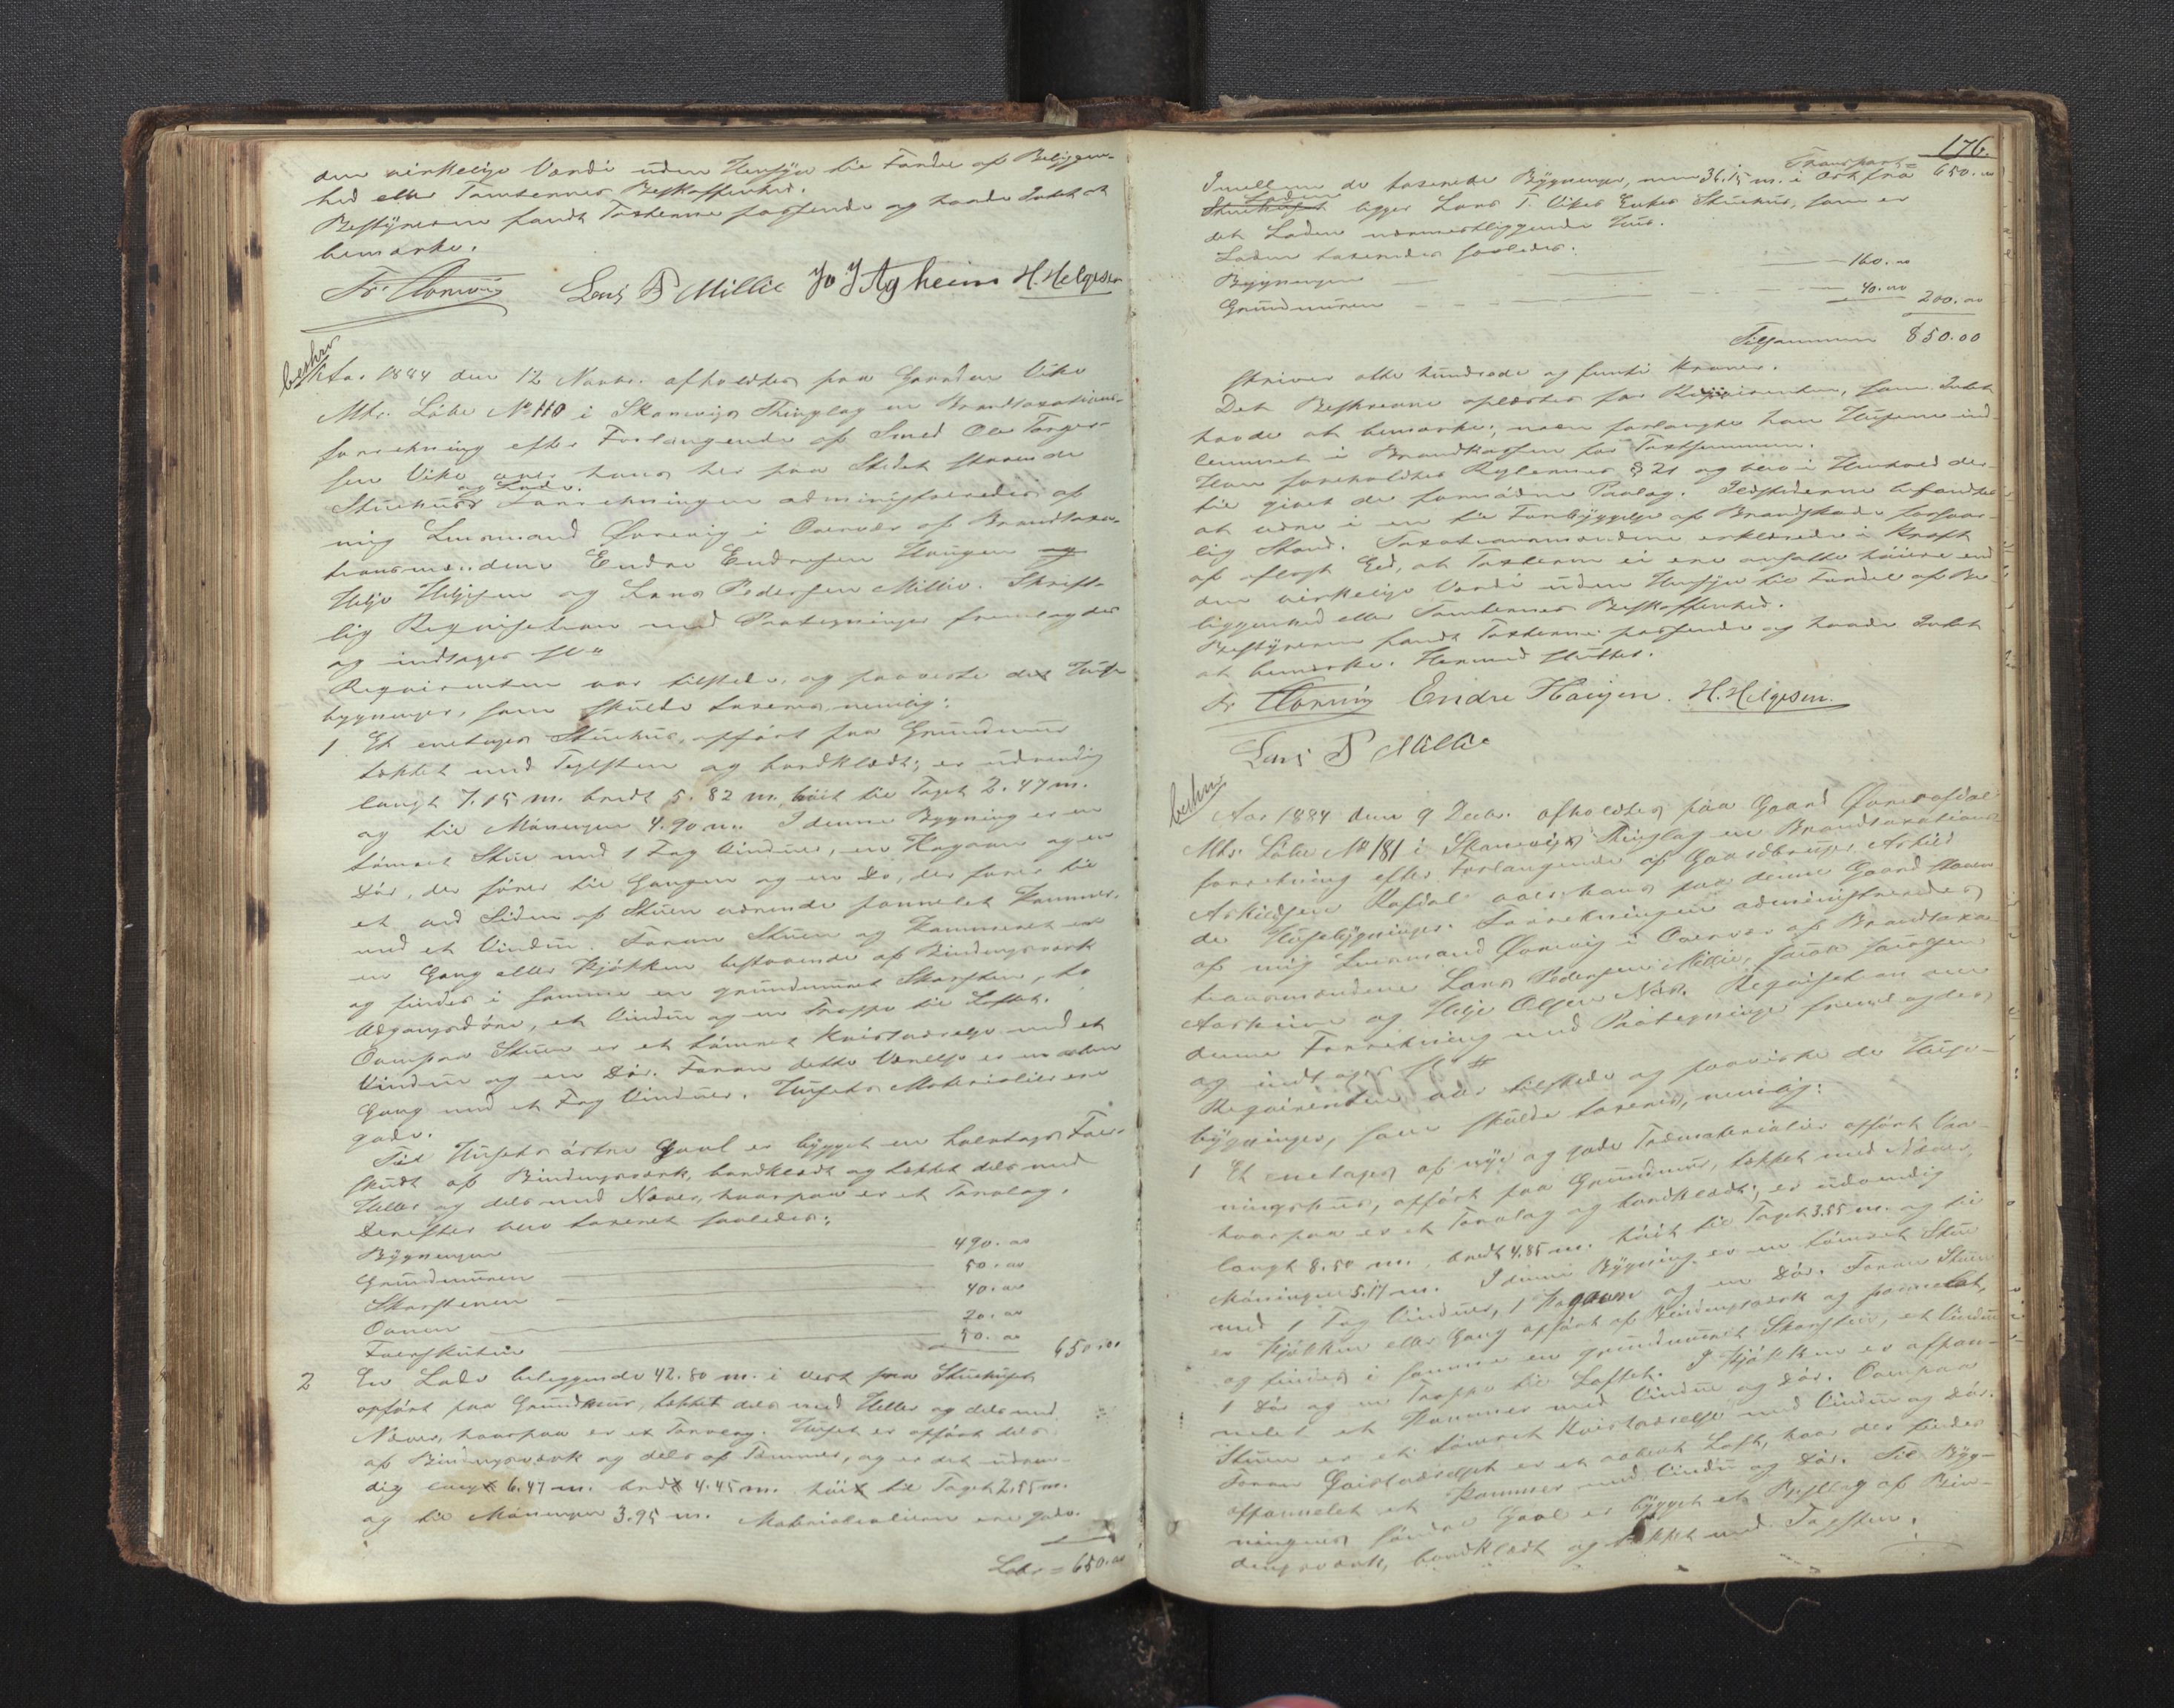 den virkelige Værdi uden Hensyn til Fordel af Beliggen-
hed eller Tomternes Beskaffenhed.
Bestyreren fandt Taxterne passende og havde Intet at
bemærke.
Fr. Lars P Millie Jo J Agheim H. Helgesen
beskr
Aar 1884 den 12 Novbr. afholdtes paa Gaarden Vike
Mtr. Løbe No 110 i Skonevigs Thinglag en Brandtaxations-
forretning efter Forlangende af Smed Ole Torger-
sen Vike over hans her paa Stedet staaende
og Lade.
Stuehus Forretningen administreredes af
mig Lensmand i Overvær af Brandtaxa-
tionsmændene Endre Endresen Haugen og
Helge Helgesen og Lars Pedersen Millie. Skrift-
lig Requisition med Paategninger fremlagdes
og indtages
Requirenten var tilstede, og paaviste det Huse
bygninger, som skulde taxeres nemlig:
1 Et eenetages Stuehus, opført paa Grundmuur
tækket med Teglsten og bordklædt; er udvendig
langt 7.15 m. bredt 5.82 m. høit til Taget 2.47 m.
og til Møningen 4.90 m. I denne Bygning er en
tømret Stue med 1 Fag Vinduer, en Kogovn og en
Dør, der fører til Gangen og en Do, der fører til
et ved Siden af Stuen værende pannelet Kammer,
med et Vindu. Foran Stuen og Kammeret er
en Gang eller Kjøkken bestaaende af Bindingsværk
og findes i samme en grundmuret Skorsten, to
Udgangsdøre, et Vindu og en Trappe til Loftet.
Ovenpaa Stuen er et tømret Kvistværelse med et
Vindu og en Dør. Foran dette Værelse er en aaben
Gang med et Fag Vinduer. Husets Materialier ere
gode.
Til Husets østre Gavl er bygget en halvtages For-
skudt af Bindingsværk, bordklædt og tækket dels med
Heller og dels med Næver, hvorpaa er et Torvlag.
Derefter blev taxeret saaledes:
Bygningen 490.00
Grundmuren 50.00
Skorstenen 40.00
Ovnen 20.00
Forskuten 50.00 650.00
2 En Lade beliggende 42.80 m. i Vest fra Stuehuset
opført paa Grundmur, tækket dels med Heller og dels med
Næver, hvorpaa er et Torvlag. Huset er opført dels
af Bindingsværk og dels af Tømmer, og er det udven-
dig langt 6.47 m. bredt 4.45 m. høit til Taget 2.55 m.
og til Møningen 3.95 m. Materialierne ere gode.
Lats = 650.00
176.
Transport = 650.00
Imellem de taxerede Bygninger, men 36.15 m. i Øst fra
Laden
Stuehuset ligger Lars T. Vikes Enkes Stuehus, som er
det Laden nærmestliggende Huus.
Laden taxeredes saaledes:
Bygningen 160.00
Grundmuren 40.00 200.00
Tilsammen 850.00
skriver otte hundrede og femti Kroner.
Det Beskrevne oplæstes for Requirenten, som Intet
havde at bemærke; men forlangte han Husene ind-
lemmet i Brandkassen for Taxtsummen.
Han foreholdtes Reglernes § 21 og blev i Henhold der-
til givet de fornødne Paalæg. Ildstederne befandtes
at være i en til Forebyggelse af Brandskade forsvar-
lig Stand. Taxationsmændene erklærede i Kraft
af aflagt Eed, at Taxterne ei ere ansatte høiere end
den virkelige Værdi uden Hensyn til Fordel af Be-
liggenhed eller Tomternes Beskaffenhed.
Bestyreren fandt Taxterne passende og havde Intet
at bemærke. Hermed sluttet.
Fr. Endre Haugen. H. Helgesen.
Lars P Millie
beskr
Aar 1884 den 9 Decbr. afholdtes paa Gaard
Mtr. Løbe No 181 i Skonevigs Thinglag en Brandtaxations
forretning efter Forlangende af Gaardbruger Askild
Askildsen over hans paa denne Gaard staaen
de Husebygninger. Forretningen administreredes
af mig Lensmand i Overvær af Brandtaxa
tionsmændene Lars Pedersen Millie,
og Helge Olsen Requisition om
denne Forretning med Paategninger fremlagdes
og indtages
Requirenten var tilstede og paaviste de Huse-
bygninger, som skulde taxeres, nemlig:
1 Et enetages af nye og gode Træmaterialier opført Vaa-
ningshus, opført paa Grundmur, tækket med Næver,
hvorpaa er et Torvlag og bordklædt; er udvendig
langt 8.50 m., bredt 4.85 m. høit til Taget 3.55 m. og til
Møningen 5.17 m. I denne Bygning er en tømret Stue
med 1 Fag Vinduer, 1 Kogovn og en Dør. Foran Stuen
er Kjøkken eller Gang opført af Bindingsværk og pannelet,
og findes i samme en grundmuret Skorsten, et Vindu
1 Dør og en Trappe til Loftet. I Kjøkken er afpan-
nelet et Kammer med Vindu og Dør. Ovenpaa
Stuen er et tømret Kvistværelse med Vindu og Dør.
Foran Kvistværelset er et aabent Loft, hvor der findes
afpannelet et Kammer med Vindu og Dør. Til Byg-
ningens søndre Gavl er bygget et Bislag af Bin-
dingsværk, bordklædt og tækket med Taksten.